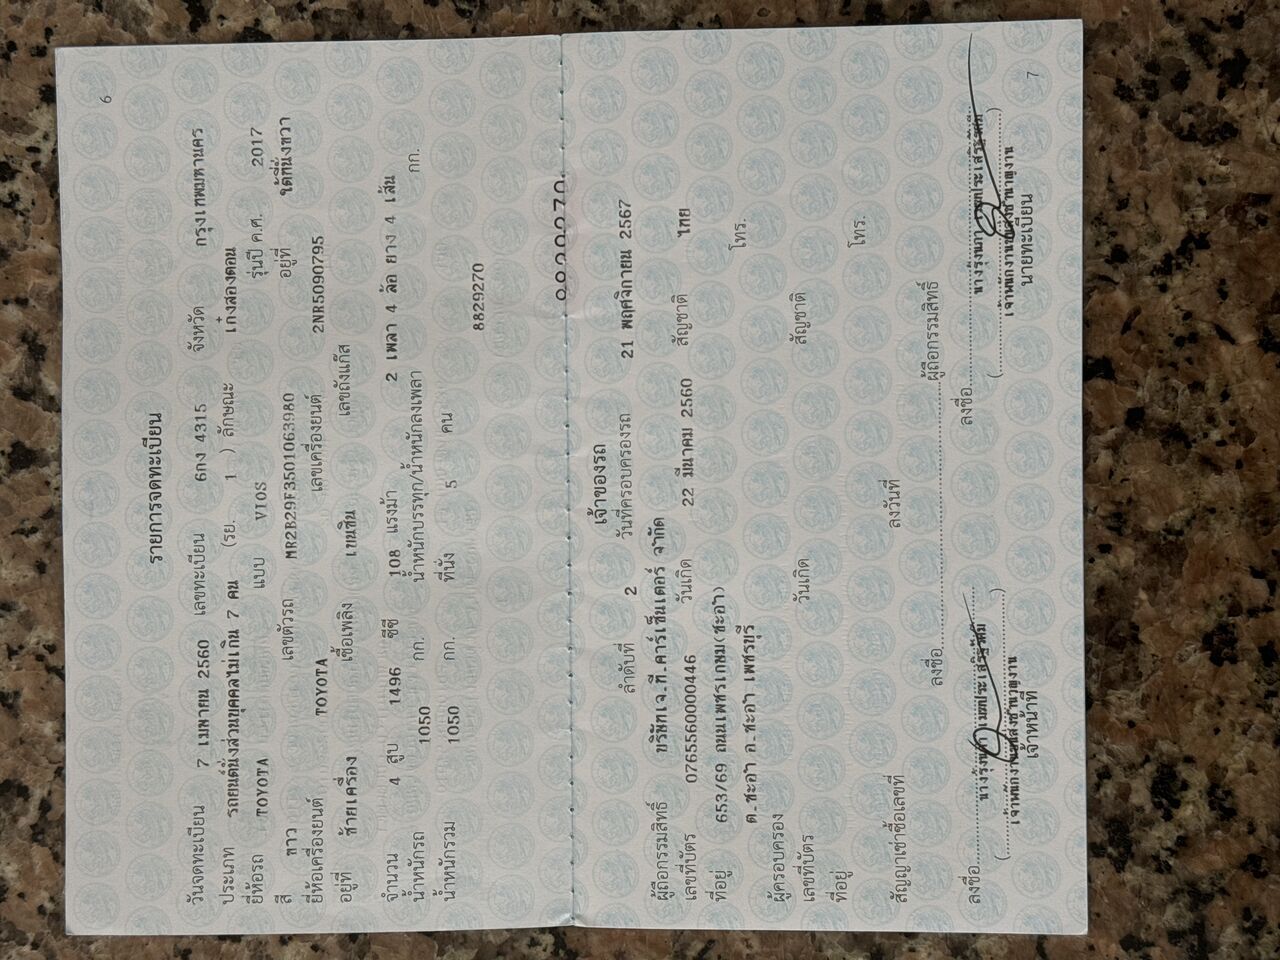 6
รายการจดทะเบียน
วันจดทะเบียน 7 เมษายน 2560 เลขทะเบียน 6กง 4315 จังหวัด กรุงเทพมหานคร
ประเภท รถยนต์นั่งส่วนบุคคลไม่เกิน 7 คน (รย. 1 ) ลักษณะ เก๋งสองตอน
ยี่ห้อรถ TOYOTA แบบ VIOS รุ่นปี ค.ศ. 2017
สี ขาว เลขตัวรถ MR2B29F3501063980 อยู่ที่ ใต้ที่นั่งขวา
ยี่ห้อเครื่องยนต์ TOYOTA เลขเครื่องยนต์ 2NR5090795
อยู่ที่ ซ้ายเครื่อง เชื้อเพลิง เบนซิน เลขถังแก๊ส
จำนวน 4 สูบ 1496 ซีซี 108 แรงม้า 2 เพลา 4 ล้อ ยาง 4 เส้น
น้ำหนักรถ 1050 กก. น้ำหนักบรรทุก/น้ำหนักลงเพลา กก.
น้ำหนักรวม 1050 กก. ที่นั่ง 5 คน
8829270
เจ้าของรถ
ลำดับที่ 2 วันที่ครอบครองรถ 21 พฤศจิกายน 2567
ผู้ถือกรรมสิทธิ์ บริษัทเจ.ที.คาร์เซ็นเตอร์ จำกัด
เลขที่บัตร 0765560000446 วันเกิด 22 มีนาคม 2560 สัญชาติ ไทย
ที่อยู่ 653/69 ถนนเพชรเกษม(ชะอำ) โทร.
ต.ชะอำ อ.ชะอำ เพชรบุรี
ผู้ครอบครอง
เลขที่บัตร วันเกิด สัญชาติ
ที่อยู่ โทร.
สัญญาเช่าซื้อเลขที่ ลงวันที่
ลงชื่อ ผู้ถือกรรมสิทธิ์
ลงชื่อ ลงชื่อ
เจ้าพนักงานขนส่งชำนาญงาน เจ้าพนักงานขนส่งชำนาญงาน
เจ้าหน้าที่ นายทะเบียน
7